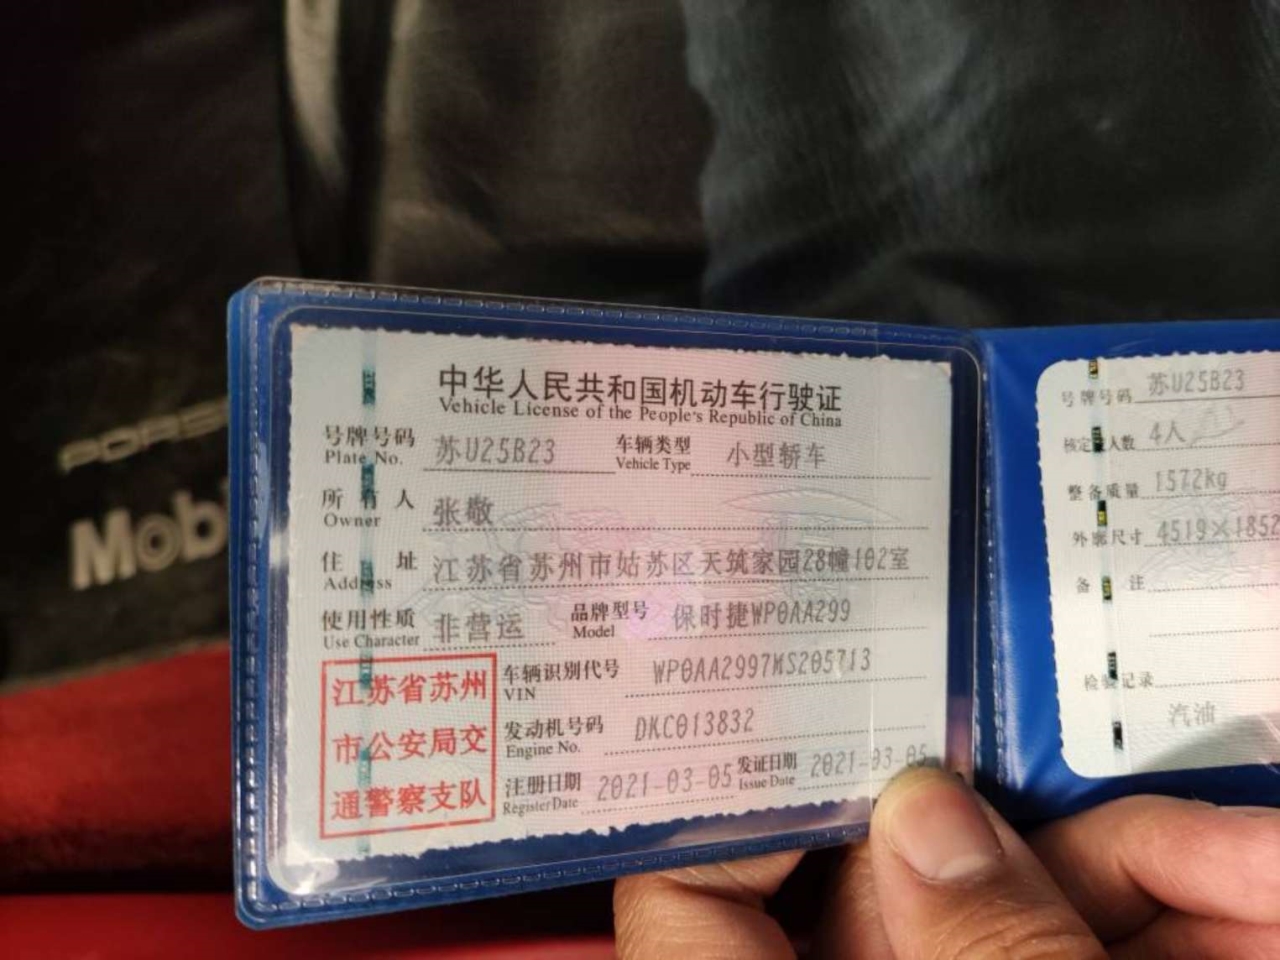 PORS
Mobi
中华人民共和国机动车行驶证
Vehicle License of the People's Republic of China
号牌号码 苏U25B23 车辆类型 小型轿车
Plate No. Vehicle Type
所有人 张敬
Owner
住址 江苏省苏州市姑苏区天筑家园28幢102室
Address
使用性质 非营运 品牌型号 保时捷WP0AA299
Use Character Model
江苏省苏州
市公安局交
通警察支队
车辆识别代号 WP0AA2997MS205713
VIN
发动机号码 DKC013832
Engine No.
注册日期 2021-03-05 发证日期 2021-03-05
Register Date Issue Date
号牌号码 苏U25B23
核定人数 4人
整备质量 1572kg
外廓尺寸 4519×1852
备注
检验记录
汽油